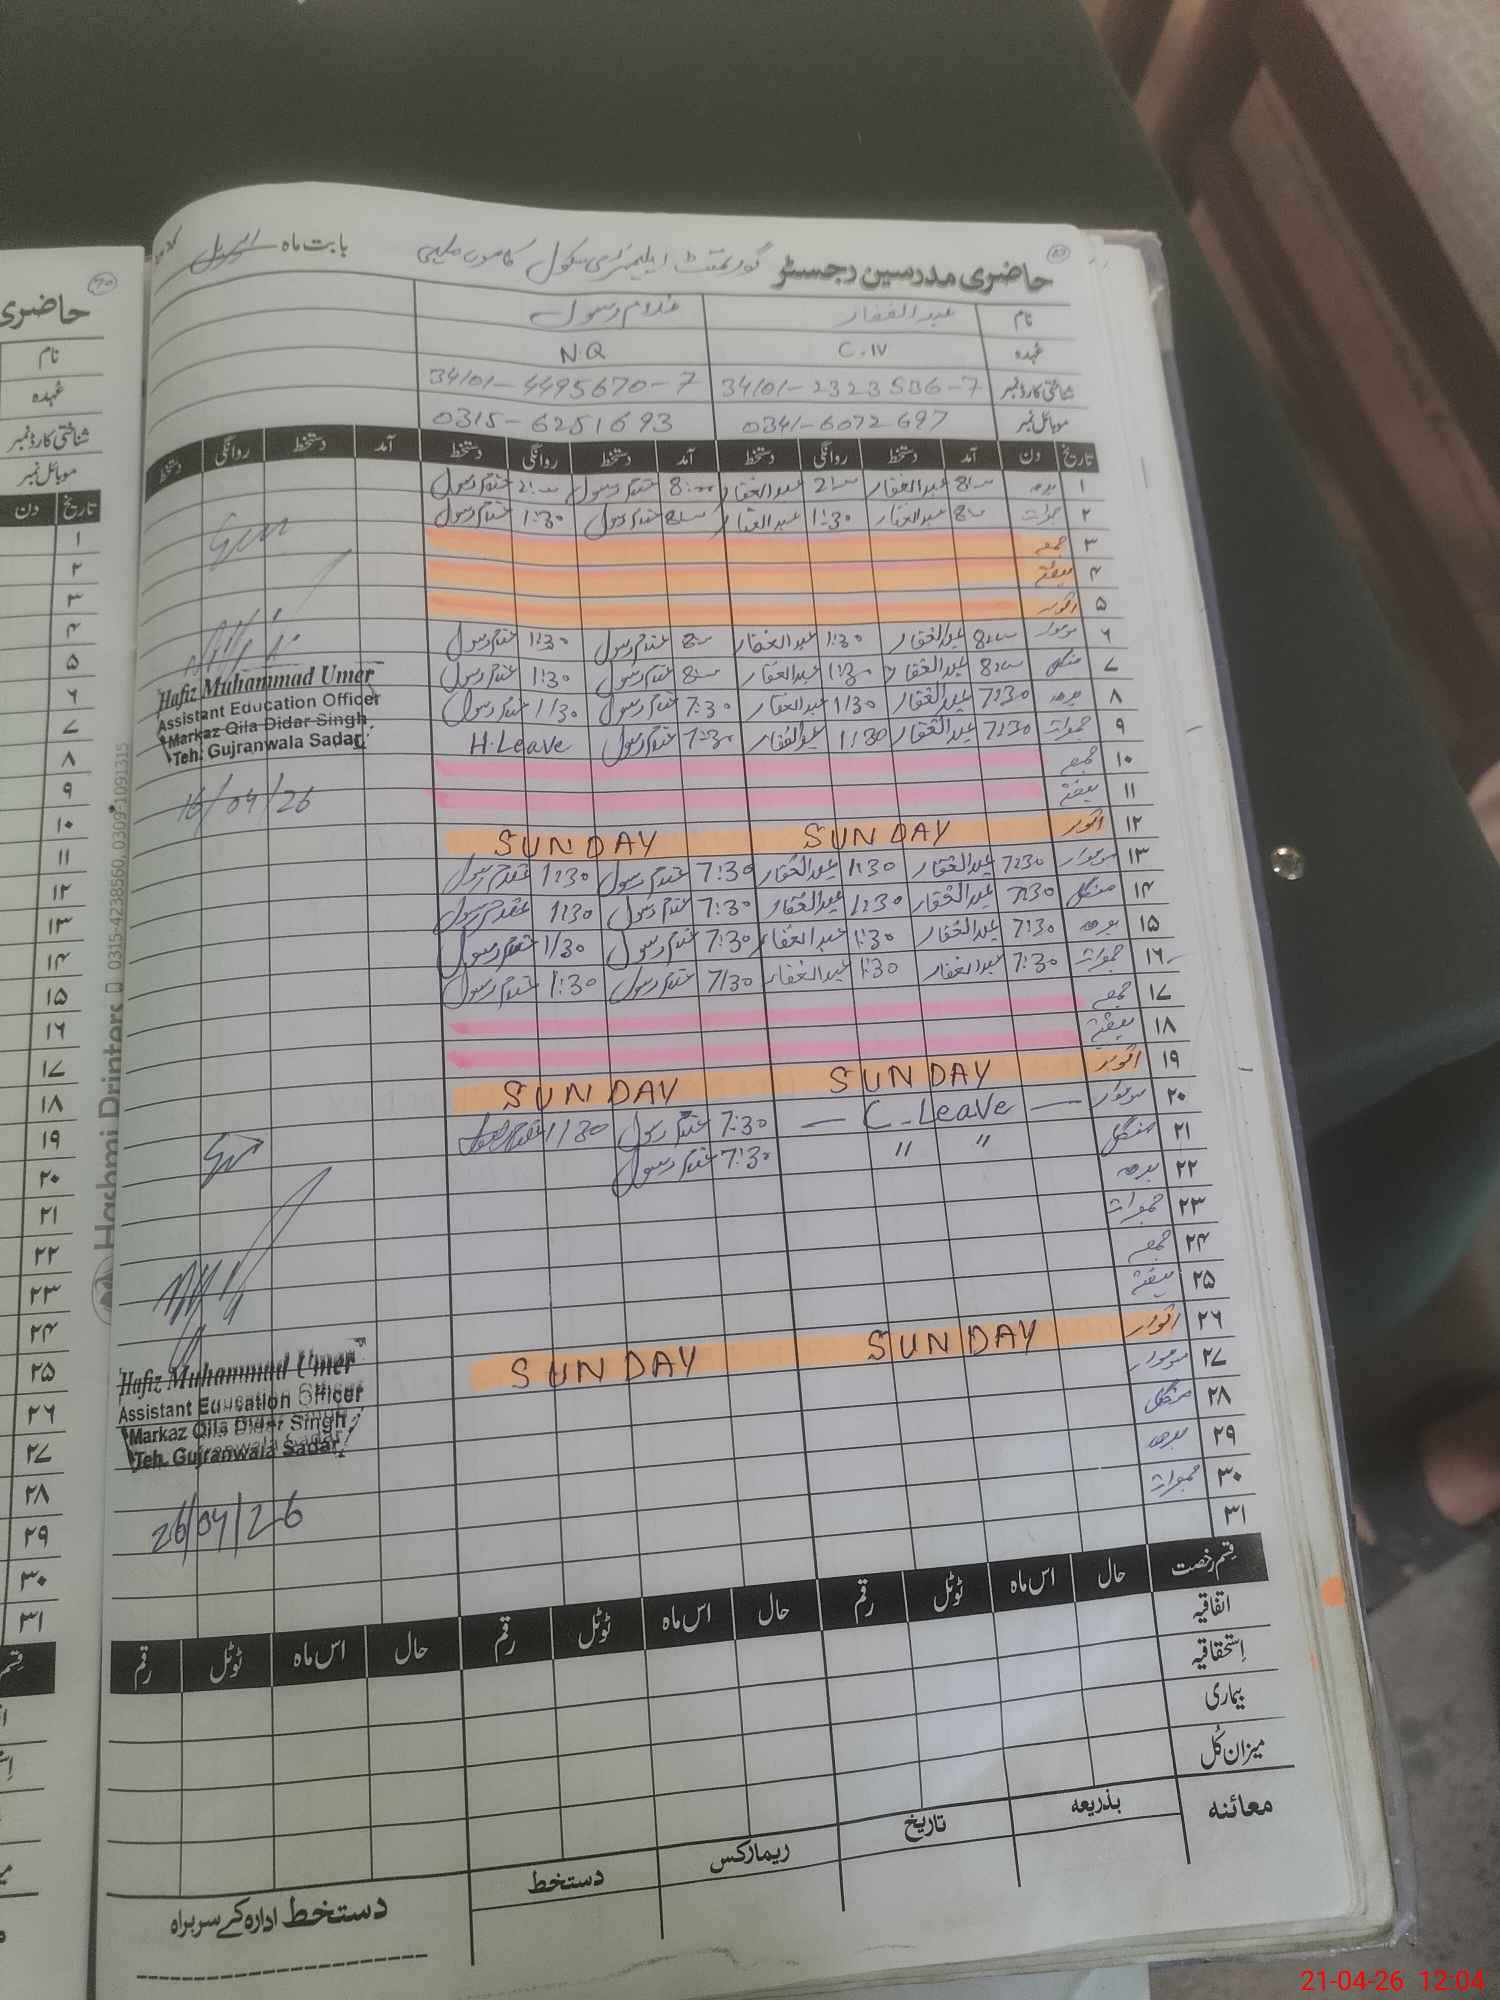 حاضری مدرسین رجسٹر گورنمنٹ ایلیمنٹری سکول بابت ماہ اپریل
نام عبدالغفار غلام رسول
عہدہ C.IV N.Q
شناختی کارڈ نمبر 34101-2323536-7 34101-4495670-7
موبائل نمبر 0341-6072697 0315-6251693
تاریخ دن آمد دستخط روانگی دستخط آمد دستخط روانگی دستخط آمد دستخط روانگی دستخط
۱ بدھ 8:00 عبدالغفار 2:00 عبدالغفار 8:00 غلام رسول 2:00 غلام رسول
۲ جمعرات 8:00 عبدالغفار 1:30 عبدالغفار 8:00 غلام رسول 1:30 غلام رسول
۳ جمعہ
۴ ہفتہ
۵ اتوار
۶ سوموار 8:00 عبدالغفار 1:30 عبدالغفار 8:00 غلام رسول 1:30 غلام رسول
۷ منگل 8:00 عبدالغفار 1:30 عبدالغفار 8:00 غلام رسول 1:30 غلام رسول
۸ بدھ 7:30 عبدالغفار 1/30 عبدالغفار 7:30 غلام رسول 1/30 غلام رسول
۹ جمعرات 7:30 عبدالغفار 1/30 عبدالغفار 7:30 غلام رسول H.Leave
۱۰ جمعہ
۱۱ ہفتہ
۱۲ اتوار SUNDAY SUNDAY
۱۳ سوموار 7:30 عبدالغفار 1:30 عبدالغفار 7:30 غلام رسول 1:30 غلام رسول
۱۴ منگل 7:30 عبدالغفار 1:30 عبدالغفار 7:30 غلام رسول 1:30 غلام رسول
۱۵ بدھ 7:30 عبدالغفار 1:30 عبدالغفار 7:30 غلام رسول 1/30 غلام رسول
۱۶ جمعرات 7:30 عبدالغفار 1:30 عبدالغفار 7/30 غلام رسول 1:30 غلام رسول
۱۷ جمعہ
۱۸ ہفتہ
۱۹ اتوار SUNDAY SUNDAY
۲۰ سوموار — C.Leave — 7:30 غلام رسول 1/30 غلام رسول
۲۱ منگل " " 7:30 غلام رسول
۲۲ بدھ
۲۳ جمعرات
۲۴ جمعہ
۲۵ ہفتہ
۲۶ اتوار SUNDAY SUNDAY
۲۷ سوموار
۲۸ منگل
۲۹ بدھ
۳۰ جمعرات
۳۱
Hafiz Muhammad Umer
Assistant Education Officer
Markaz Qila Didar Singh
Teh. Gujranwala Sadar
16/04/26
Hafiz Muhammad Umer
Assistant Education Officer
Markaz Qila Didar Singh
Teh. Gujranwala Sadar
26/04/26
قسم رخصت حال اس ماہ ٹوٹل رقم حال اس ماہ ٹوٹل رقم حال اس ماہ ٹوٹل رقم
اتفاقیہ
استحقاقیہ
بیماری
میزان کل
معائنہ بذریعہ تاریخ ریمارکس دستخط
دستخط ادارہ کے سربراہ
حاضری
نام
عہدہ
شناختی کارڈ نمبر
موبائل نمبر
تاریخ دن
۱
۲
۳
۴
۵
۶
۷
۸
۹
۱۰
۱۱
۱۲
۱۳
۱۴
۱۵
۱۶
۱۷
۱۸
۱۹
۲۰
۲۱
۲۲
۲۳
۲۴
۲۵
۲۶
۲۷
۲۸
۲۹
۳۰
۳۱
Hashmi Printers 0315-4238560, 0309-1091315
21-04-26 12:04